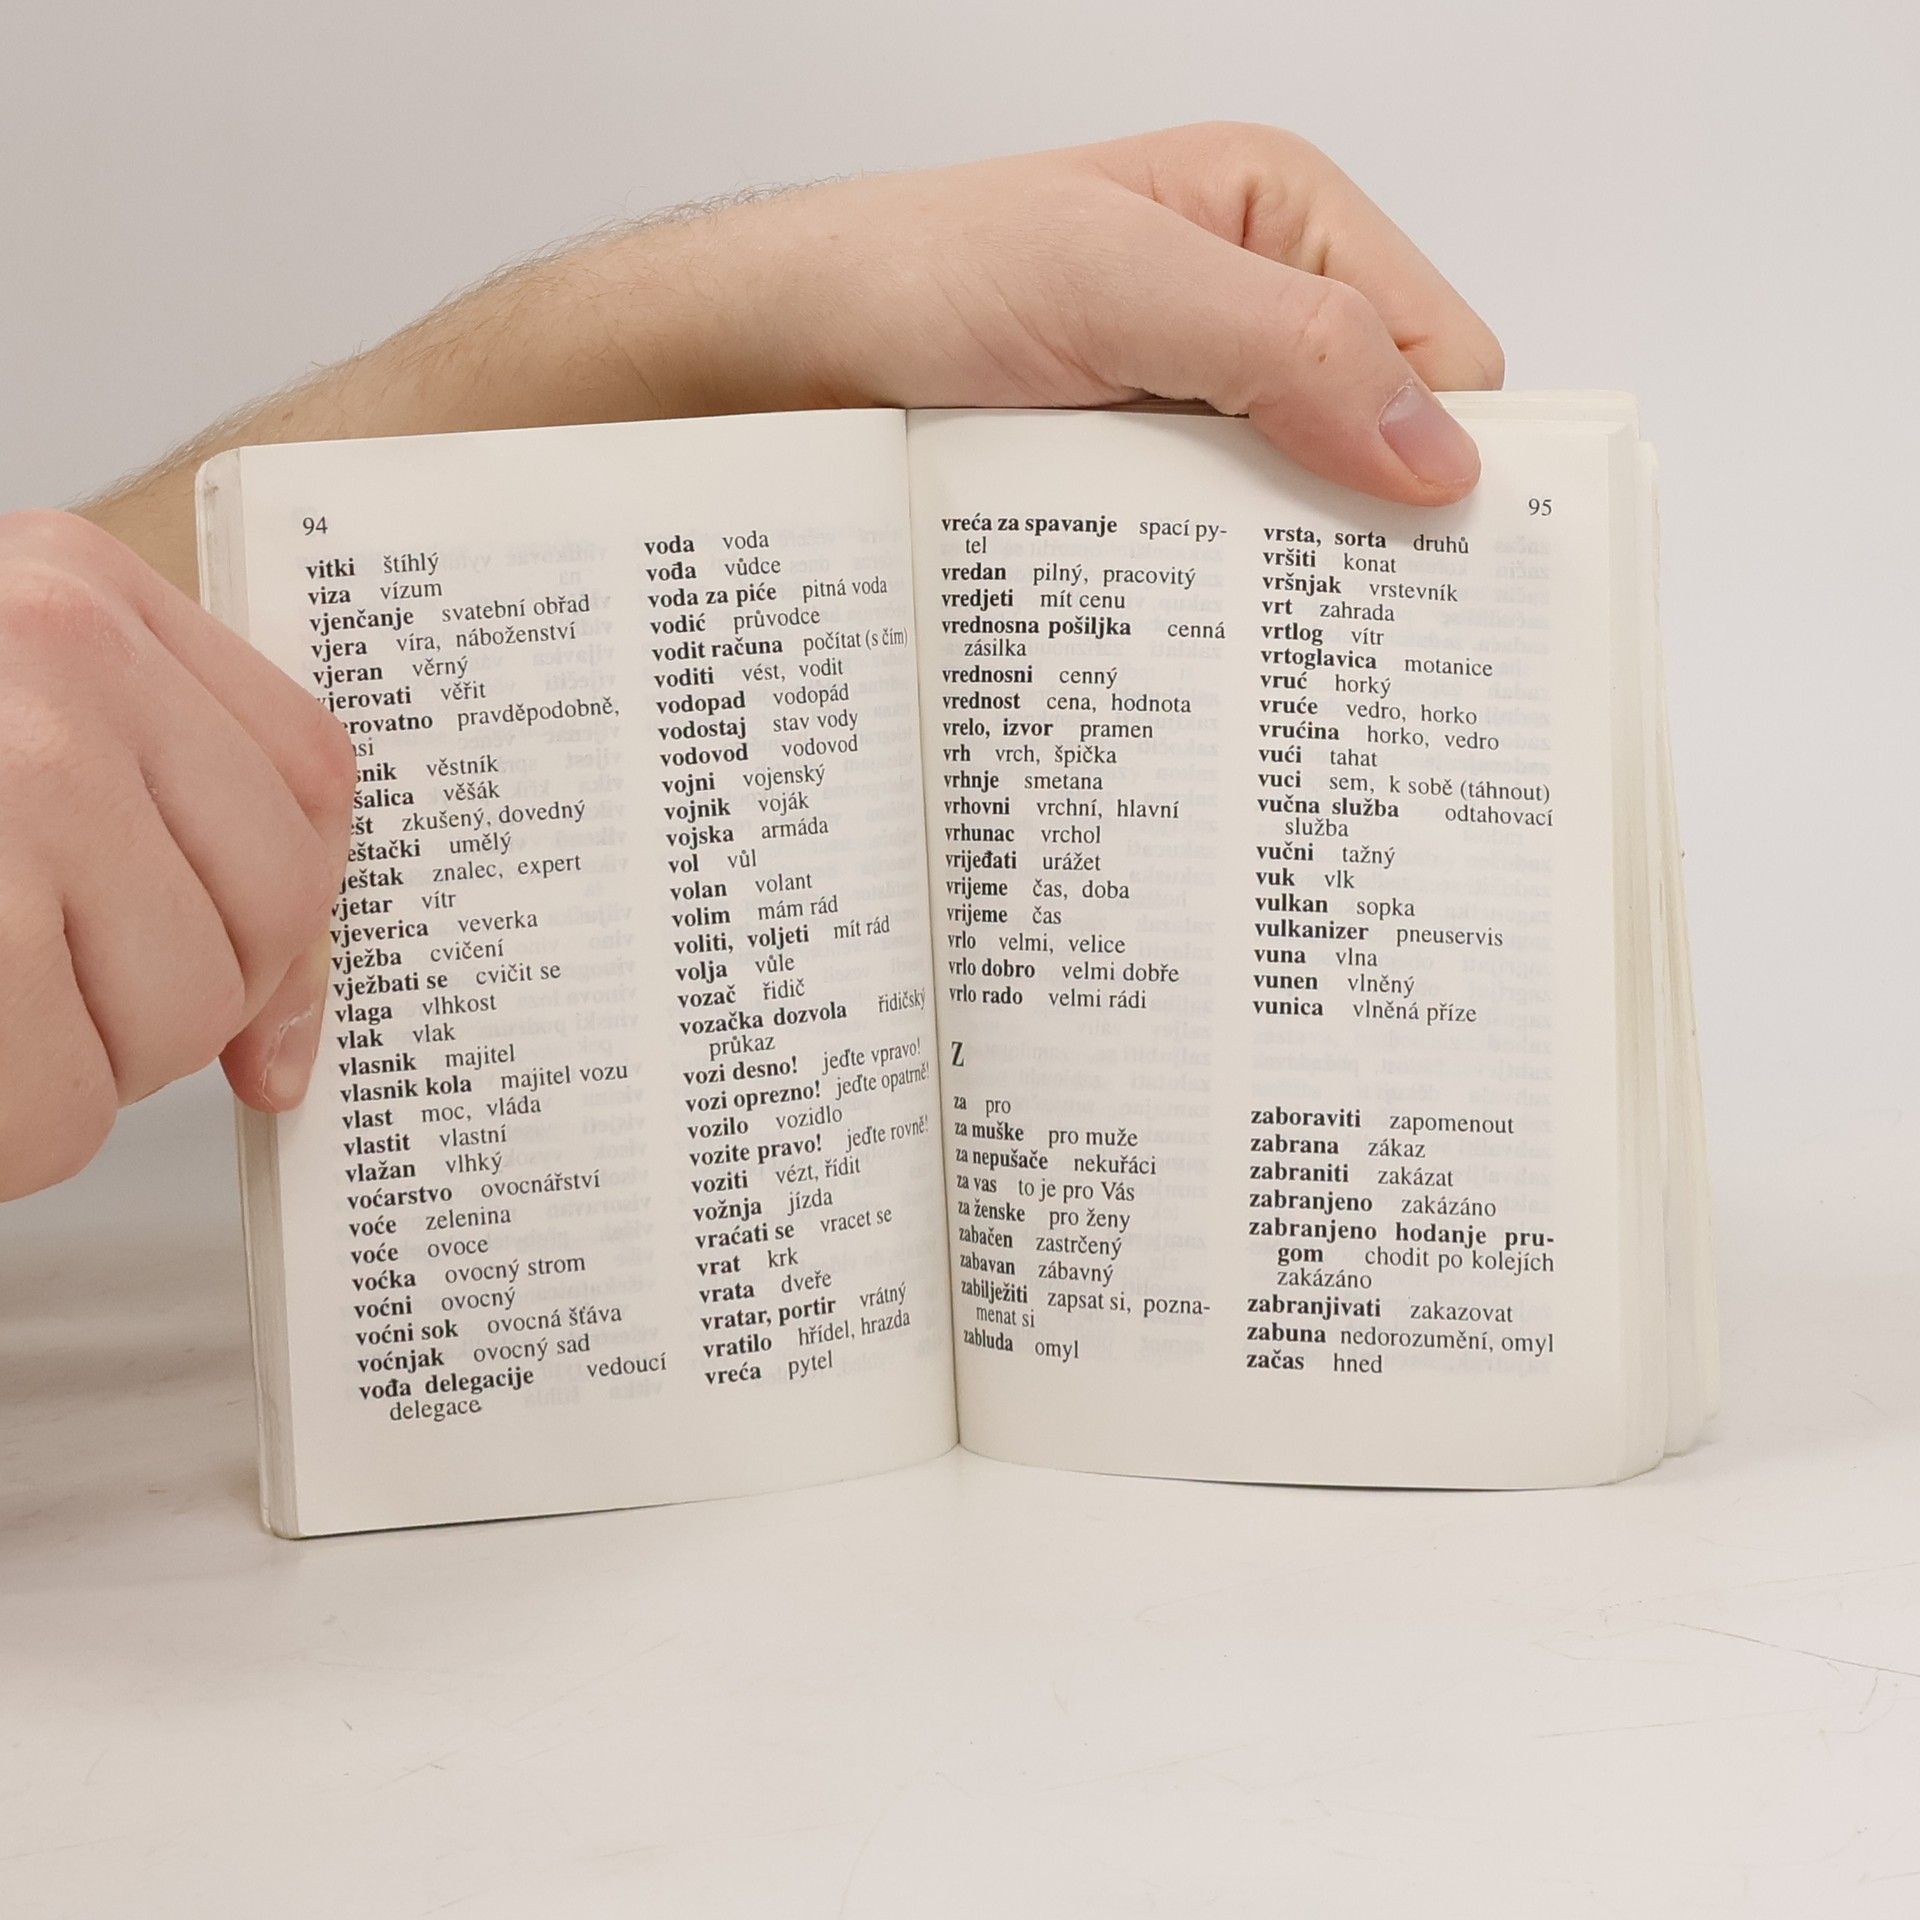 94
vitki štíhlý
viza vízum
vjenčanje svatební obřad
vjera víra, náboženství
vjeran věrný
vjerovati věřit
erovatno pravděpodobně,
asi
snik věstník
šalica věšák
ešt zkušený, dovedný
eštački umělý
ještak znalec, expert
vjetar vítr
vjeverica veverka
vježba cvičení
vježbati se cvičit se
vlaga vlhkost
vlak vlak
vlasnik majitel
vlasnik kola majitel vozu
vlast moc, vláda
vlastit vlastní
vlažan vlhký
voćarstvo ovocnářství
voće zelenina
voće ovoce
voćka ovocný strom
voćni ovocný
voćni sok ovocná šťáva
voćnjak ovocný sad
vođa delegacije vedoucí
delegace
voda voda
vođa vůdce
voda za piće pitná voda
vodić průvodce
vodit računa počítat (s čím)
voditi vést, vodit
vodopad vodopád
vodostaj stav vody
vodovod vodovod
vojni vojenský
vojnik voják
vojska armáda
vol vůl
volan volant
volim mám rád
voliti, voljeti mít rád
volja vůle
vozač řidič
vozačka dozvola řidičský
průkaz
vozi desno! jeďte vpravo!
vozi oprezno! jeďte opatrně!
vozilo vozidlo
vozite pravo! jeďte rovně!
voziti vézt, řídit
vožnja jízda
vraćati se vracet se
vrat krk
vrata dveře
vratar, portir vrátný
vratilo hřídel, hrazda
vreća pytel
95
vreća za spavanje spací py-
tel
vredan pilný, pracovitý
vredjeti mít cenu
vrednosna pošiljka cenná
zásilka
vrednosni cenný
vrednost cena, hodnota
vrelo, izvor pramen
vrh vrch, špička
vrhnje smetana
vrhovni vrchní, hlavní
vrhunac vrchol
vrijeđati urážet
vrijeme čas, doba
vrijeme čas
vrlo velmi, velice
vrlo dobro velmi dobře
vrlo rado velmi rádi
vrsta, sorta druhů
vršiti konat
vršnjak vrstevník
vrt zahrada
vrtlog vítr
vrtoglavica motanice
vruć horký
vruće vedro, horko
vrućina horko, vedro
vući tahat
vuci sem, k sobě (táhnout)
vučna služba odtahovací
služba
vučni tažný
vuk vlk
vulkan sopka
vulkanizer pneuservis
vuna vlna
vunen vlněný
vunica vlněná příze
Z
za pro
za muške pro muže
za nepušače nekuřáci
za vas to je pro Vás
za ženske pro ženy
zabačen zastrčený
zabavan zábavný
zabilježiti zapsat si, pozna-
menat si
zabluda omyl
zaboraviti zapomenout
zabrana zákaz
zabraniti zakázat
zabranjeno zakázáno
zabranjeno hodanje pru-
gom chodit po kolejích
zakázáno
zabranjivati zakazovat
zabuna nedorozumění, omyl
začas hned